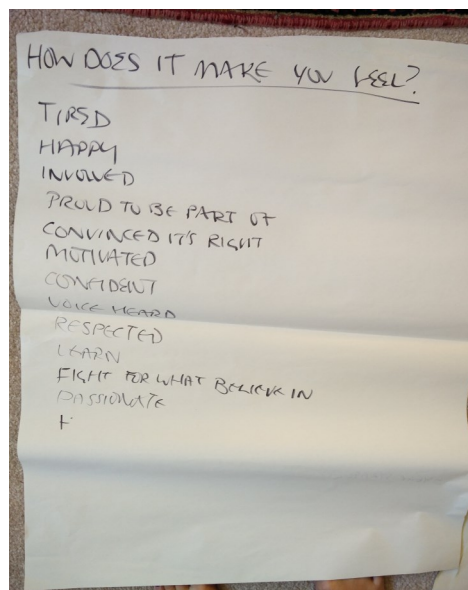 HOW DOES IT MAKE YOU FEEL?
TIRED
HAPPY
INVOLVED
PROUD TO BE PART OF
CONVINCED IT'S RIGHT
MOTIVATED
CONFIDENT
VOICE HEARD
RESPECTED
LEARN
FIGHT FOR WHAT BELIEVE IN
PASSIONATE